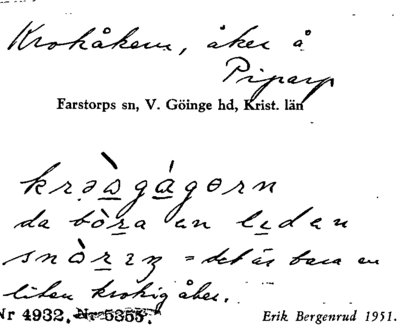 Krokåkern, åker å
Piparp
Farstorps sn, V. Göinge hd, Krist. län
krəàgágərn
da bòra en lidan
snòrız = det är bara en
liten krokig åker.
Nr 4932. Nr 5355.
Erik Bergenrud 1951.